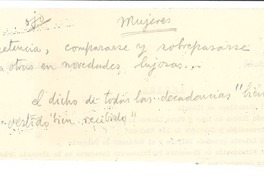 ojo
Mujeres
etencia, compararse y sobrepasarse
a otras en novedades lujosas...
El dicho de todas las decadencias "bien
vestido bien recibido"